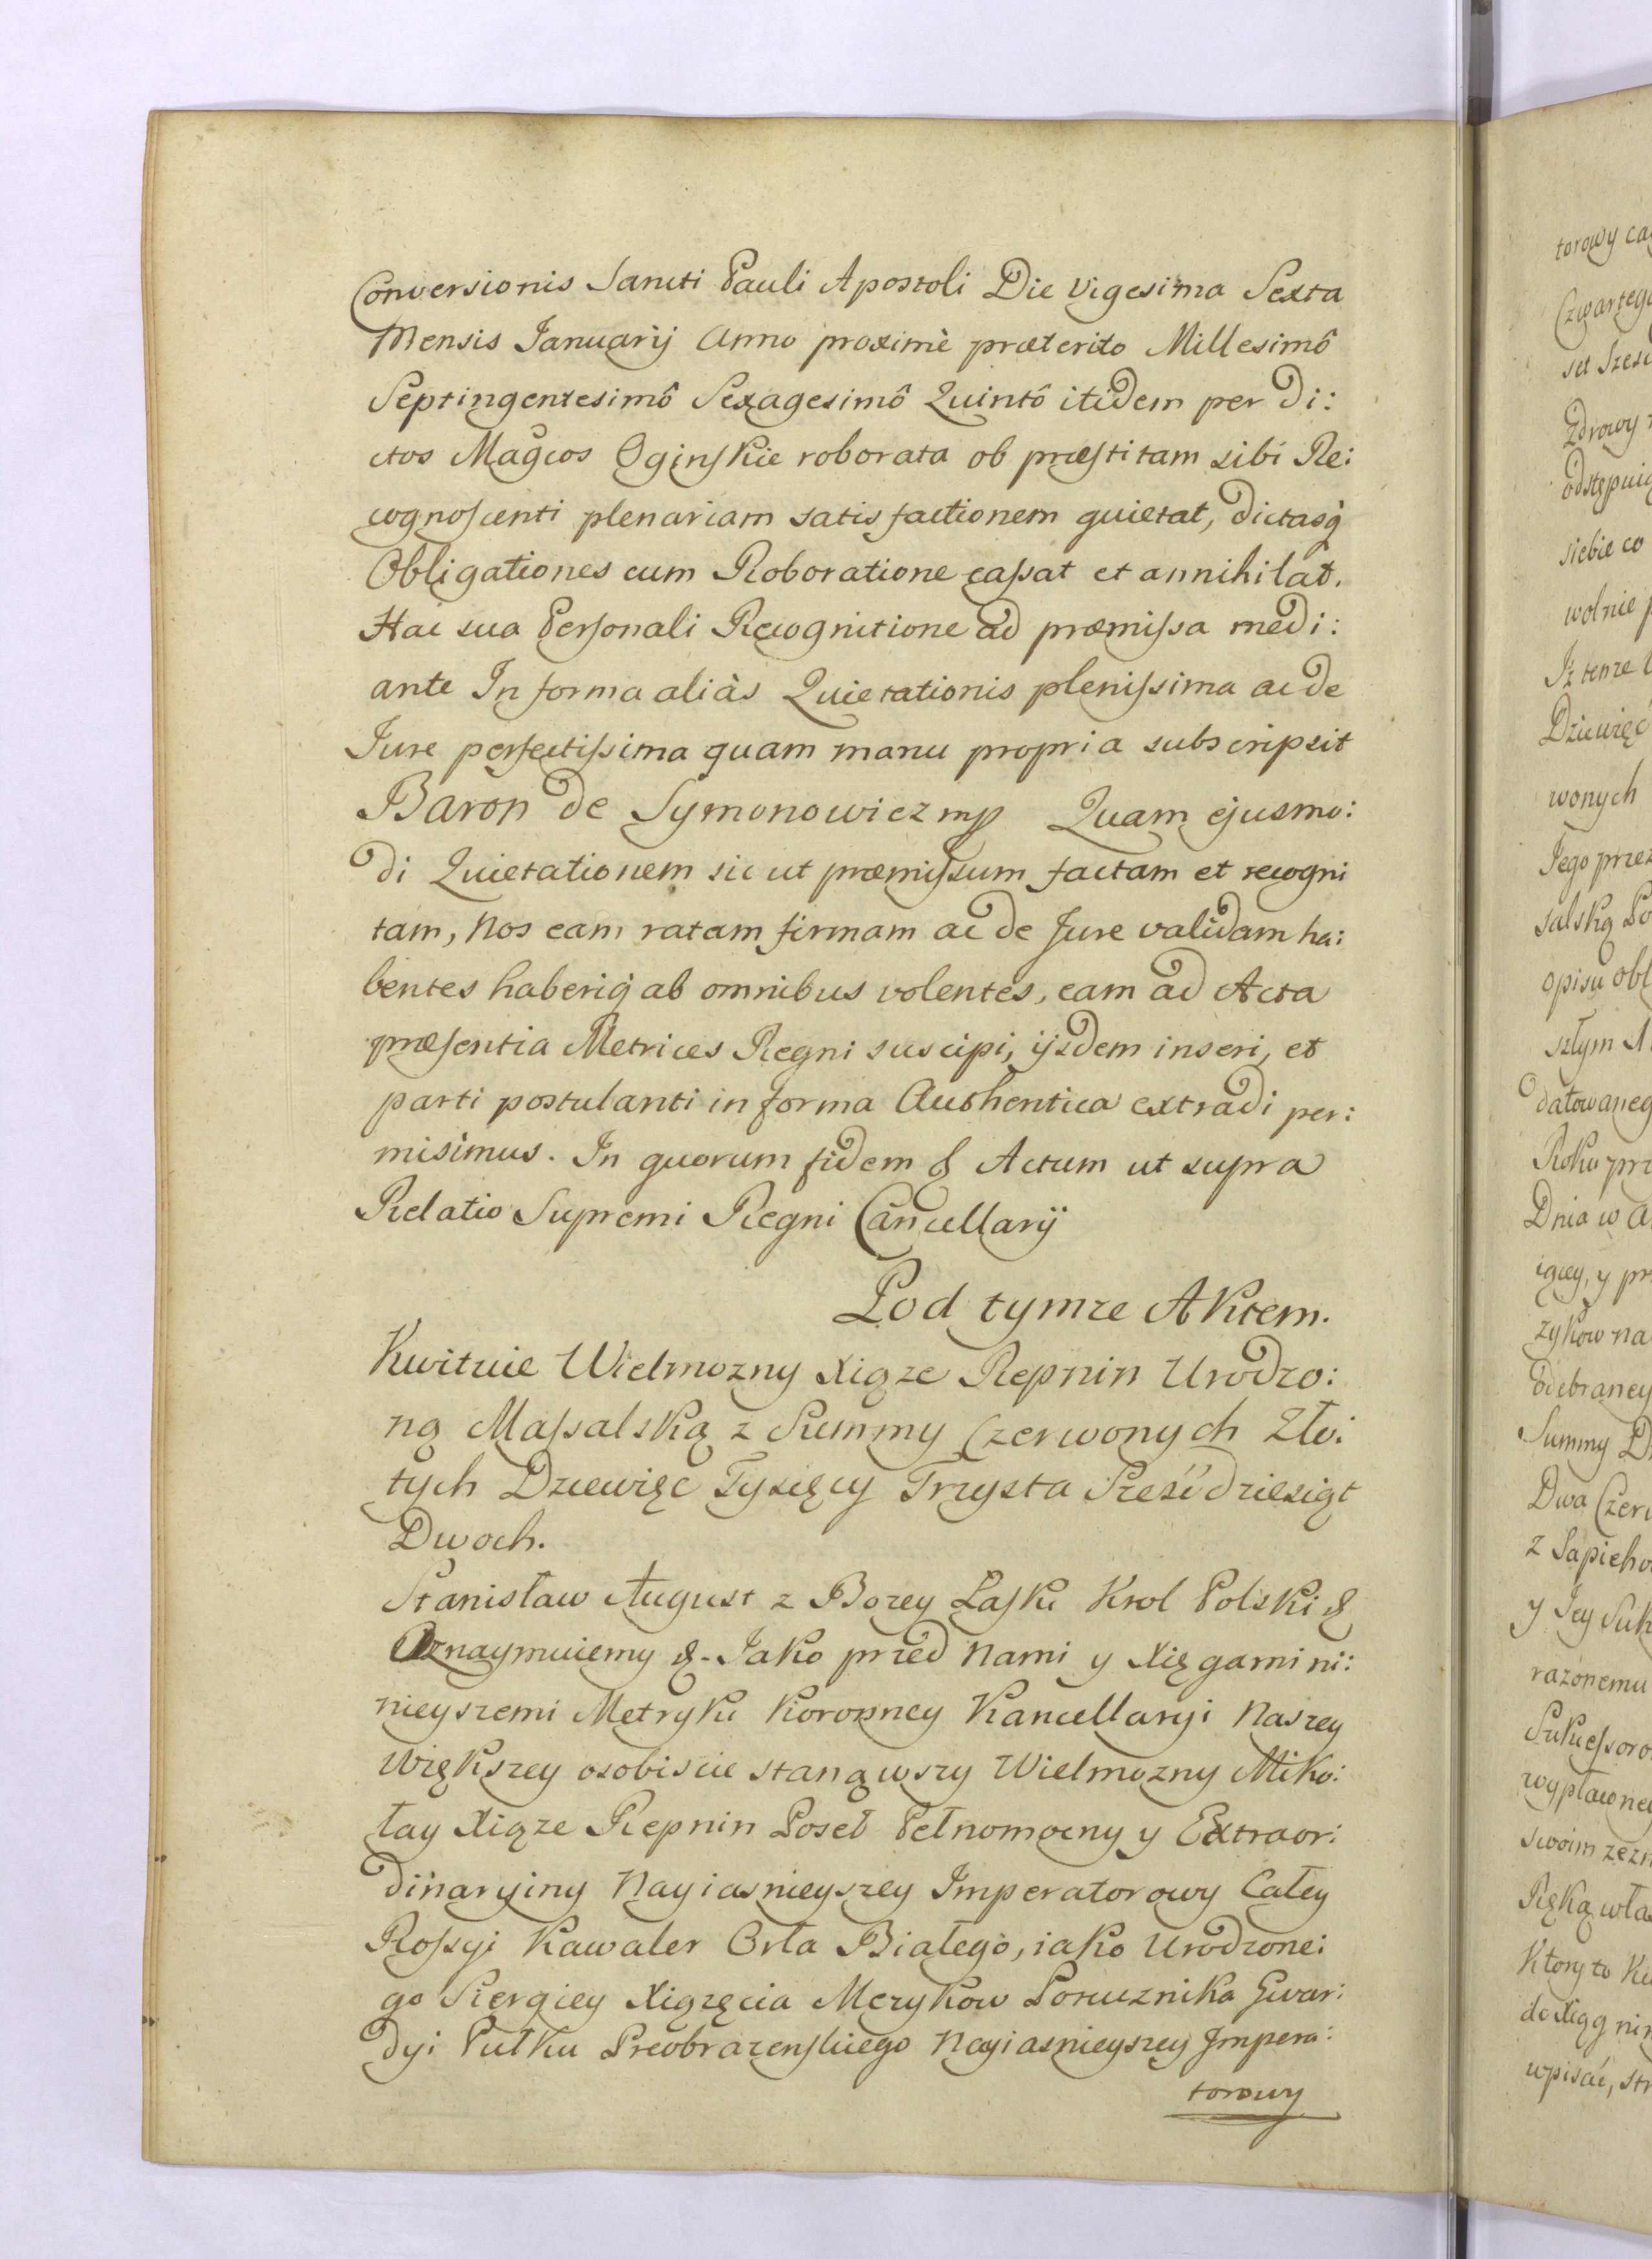 Conversionis Sancti Pauli Apostoli Die Vigesima Sexta
Mensis Januarij Anno proximè præterito Millesimô
Septingentesimô Sexagesimô Quintô itidem per di:
ctos Magcos Oginskie roborata ob præstitam sibi Re:
cognoscenti plenariam satisfactionem quietat, dictasq
Obligationes cum Roboratione cassat et annihilat.
Hac sua Personali Recognitione ad præmissa medi:
ante In forma aliàs Quietationis plenissima ac de
Jure perfectissima quam manu propria subscripsit
Baron de Symonowicz mp Quam ejusmo:
di Quietationem sic ut præmissum factam et recogni
tam, Nos eam ratam firmam ac de Jure validam ha:
bentes haberiq ab omnibus volentes, eam ad Acta
præsentia Metrices Regni suscipi, ijsdem inseri, et
parti postulanti in forma Authentica extradi per:
misimus. In quorum fidem & Actum ut supra
Relatio Supremi Regni Cancellarij
Pod tymze Aktem.
Kwituie Wielmozny Xiąze Repnin Urodzo:
ną Massalską z Summy Czerwonych Zło:
tych Dziewięc Tysięcy Trzysta Sześćdziesiąt
Dwoch.
Stanisław August z Bozey Łaski Krol Polski &
Oznaymuiemy &. Jako przed Nami y Xięgami ni:
nieyszemi Metryki Koronney Kancellaryi Naszey
Większey osobiscie stanąwszy Wielmozny Miko:
łay Xiąze Repnin Poseł Pełnomocny y Extraor:
dinaryiny Nayiasnieyszey Imperatorowy Całey
Rossyi Kawaler Orła Białego, iako Urodzone:
go Siergiey Xiązęcia Mezykow Porucznika Gwar:
dyi Pułku Preobrazenskiego Nayiasnieyszey Impera:
torowy
torowy
Czwarteg
set Szesc
Zdrowy
odstępuią
siebie co
wolnie
Iz tenze
Dziewięć
wonych
Jego przez
salską
opisu obl
szłym
datowaneg
Roku prz
Dnia w
iący, y pr
zykow na
odebraney
Summy
Dwa Czerw
z Sapieho
y Jey Suk
razonemu
Sukcessoro
wypłaconey
swoim zezn
Ręką wła
Ktory to
do Xiąg nin
wpisać, str